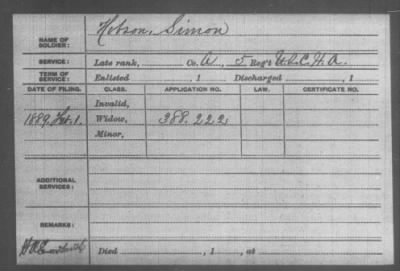 NAME OF SOLDIER: Hobson, Simon
SERVICE: Late rank, Co. A, 5 Reg't U.S.C.H.A.
TERM OF SERVICE: Enlisted , 1 Discharged , 1
DATE OF FILING. CLASS. APPLICATION NO. LAW. CERTIFICATE NO.
Invalid,
1889, Feb. 1. Widow, 388.222
Minor,
ADDITIONAL SERVICES:
REMARKS:
Died , 1 , at